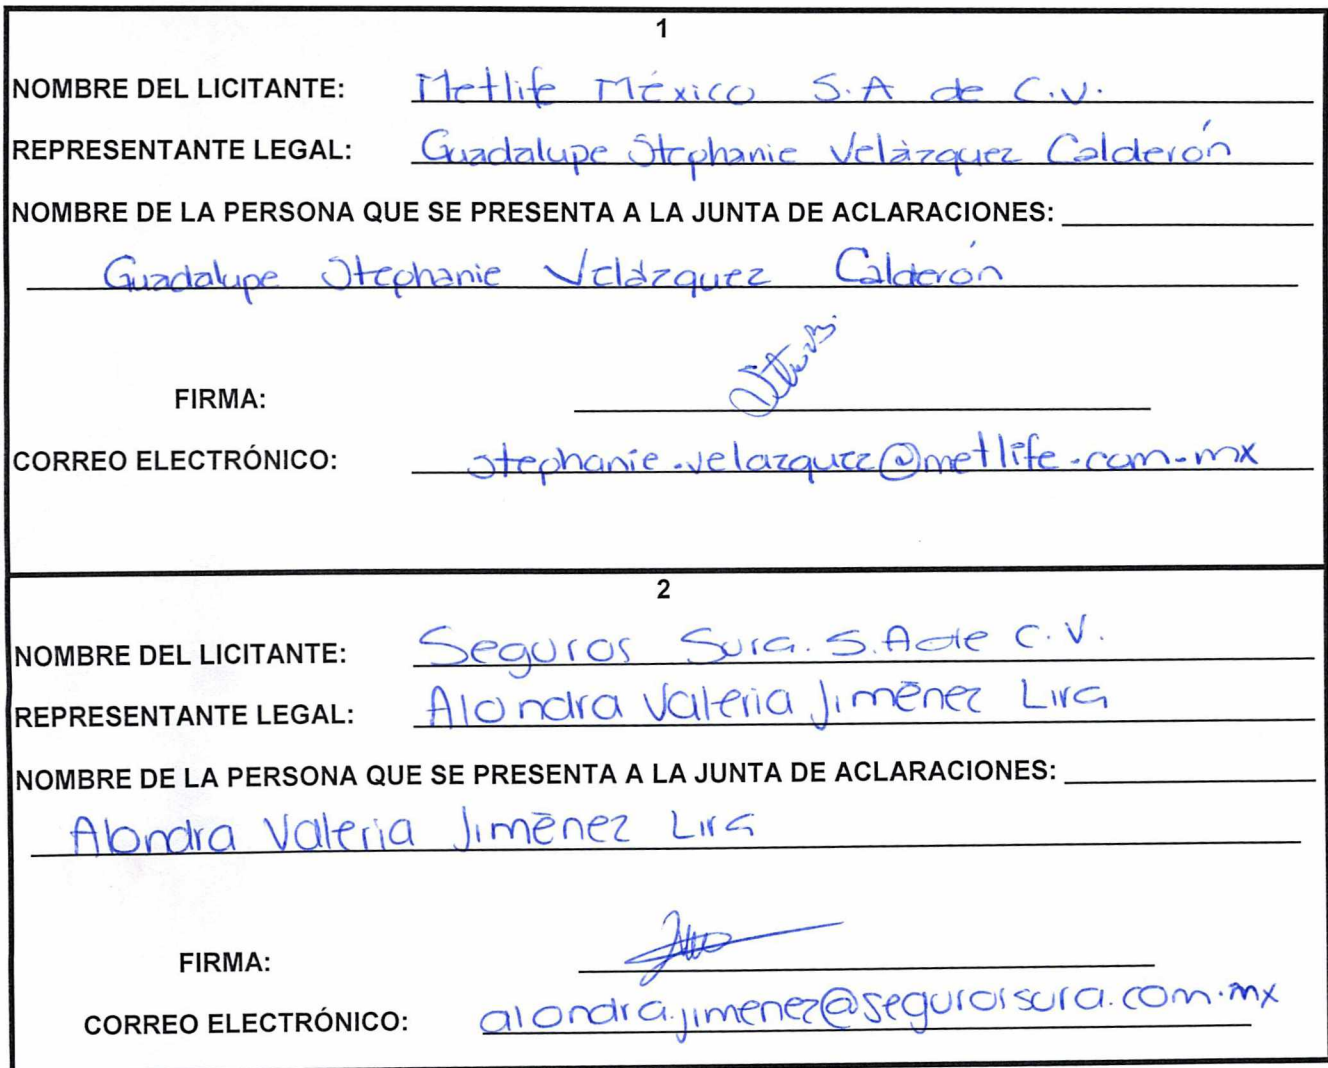 1
NOMBRE DEL LICITANTE: Metlife México S.A de C.V.
REPRESENTANTE LEGAL: Guadalupe Stephanie Velázquez Calderón
NOMBRE DE LA PERSONA QUE SE PRESENTA A LA JUNTA DE ACLARACIONES:
Guadalupe Stephanie Velázquez Calderón
FIRMA:
CORREO ELECTRÓNICO: stephanie.velazquez@metlife.com.mx
2
NOMBRE DEL LICITANTE: Seguros Sura. S.A de C.V.
REPRESENTANTE LEGAL: Alondra Valeria Jiménez Lira
NOMBRE DE LA PERSONA QUE SE PRESENTA A LA JUNTA DE ACLARACIONES:
Alondra Valeria Jiménez Lira
FIRMA:
CORREO ELECTRÓNICO: alondra.jimenez@segurossura.com.mx